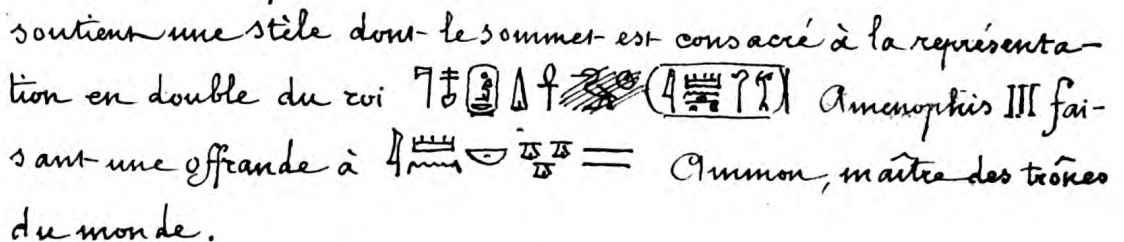 soutient une stèle dont le sommet est consacré à la représenta-
tion en double du roi 𓊹𓄤 𓏙𓋹 𓇋𓏠𓈖𓋾 Amenophis III fai-
sant une offrande à 𓇋𓏠𓈖𓎟𓎼𓎼𓎼𓇾𓇾 Ammon, maître des trônes
du monde.